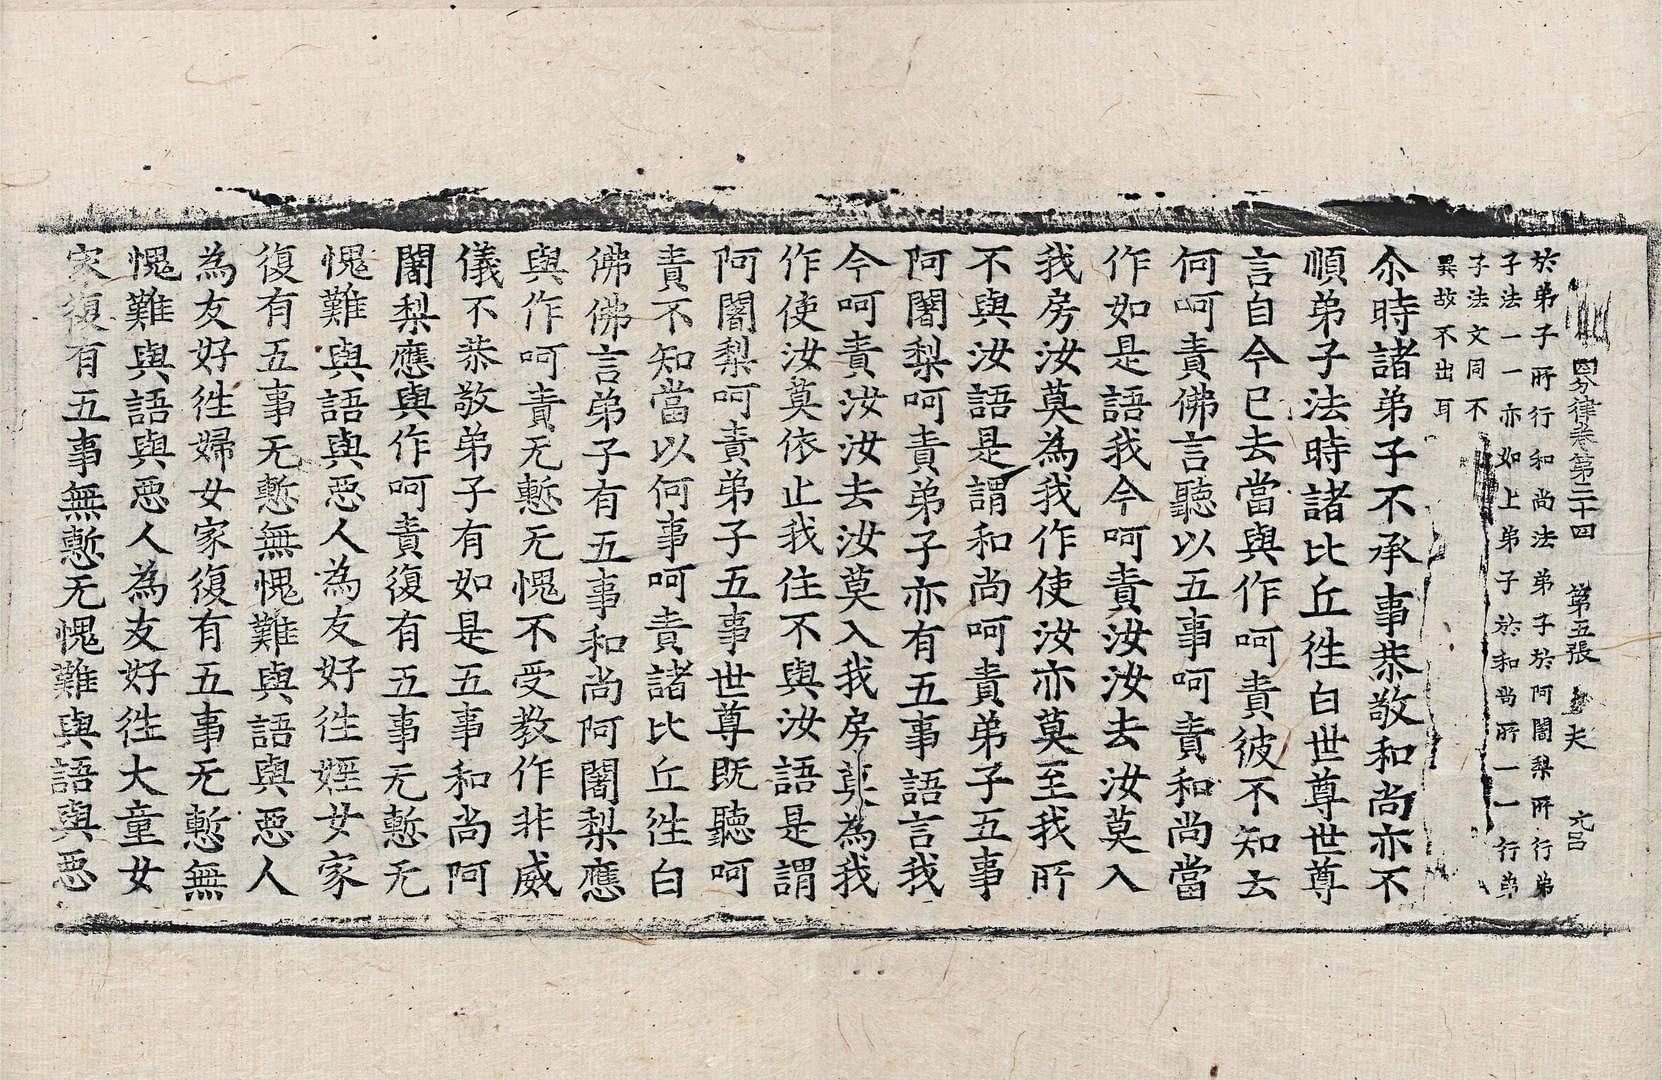 四分律卷第三十四 第五張 夫 元呂
於弟子所行和尚法弟子於阿闍梨所行弟
子法一一亦如上弟子於和尚所一一行弟
子法文同不
異故不出耳
尒時諸弟子不承事恭敬和尚亦不
順弟子法時諸比丘徃白世尊世尊
言自今已去當與作呵責彼不知云
何呵責佛言聽以五事呵責和尚當
作如是語我今呵責汝汝去汝莫入
我房汝莫為我作使汝亦莫至我所
不與汝語是謂和尚呵責弟子五事
阿闍梨呵責弟子亦有五事語言我
今呵責汝汝去汝莫入我房莫為我
作使汝莫依止我住不與汝語是謂
阿闍梨呵責弟子五事世尊既聽呵
責不知當以何事呵責諸比丘徃白
佛佛言弟子有五事和尚阿闍梨應
與作呵責无慙无愧不受教作非威
儀不恭敬弟子有如是五事和尚阿
闍梨應與作呵責復有五事无慙无
愧難與語與惡人為友好徃婬女家
復有五事无慙無愧難與語與惡人
為友好徃婦女家復有五事无慙無
愧難與語與惡人為友好徃大童女
家復有五事無慙无愧難與語與惡